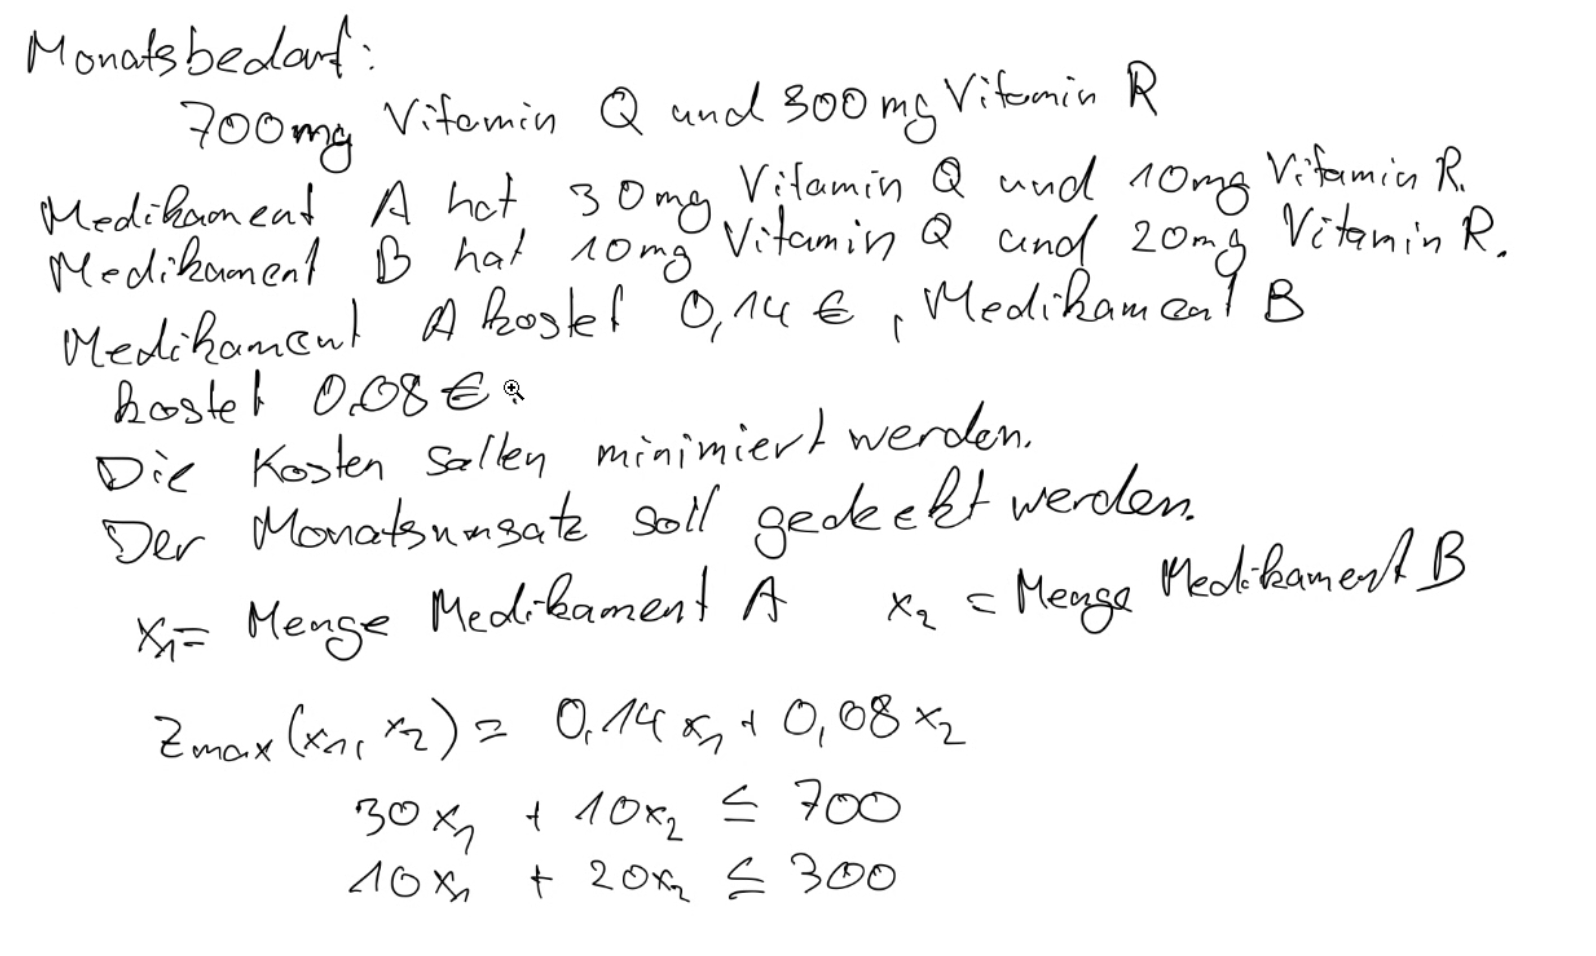 Monatsbedarf:
700mg Vitamin Q und 300mg Vitamin R
Medikament A hat 30mg Vitamin Q und 10mg Vitamin R.
Medikament B hat 10mg Vitamin Q und 20mg Vitamin R.
Medikament A kostet 0,14 €, Medikament B
kostet 0,08 €.
Die Kosten sollen minimiert werden.
Der Monatsumsatz soll gedeckt werden.
x₁ = Menge Medikament A x₂ = Menge Medikament B
Zmax (x₁, x₂) = 0,14 x₁ + 0,08 x₂
30 x₁ + 10 x₂ ≤ 700
10 x₁ + 20 x₂ ≤ 300